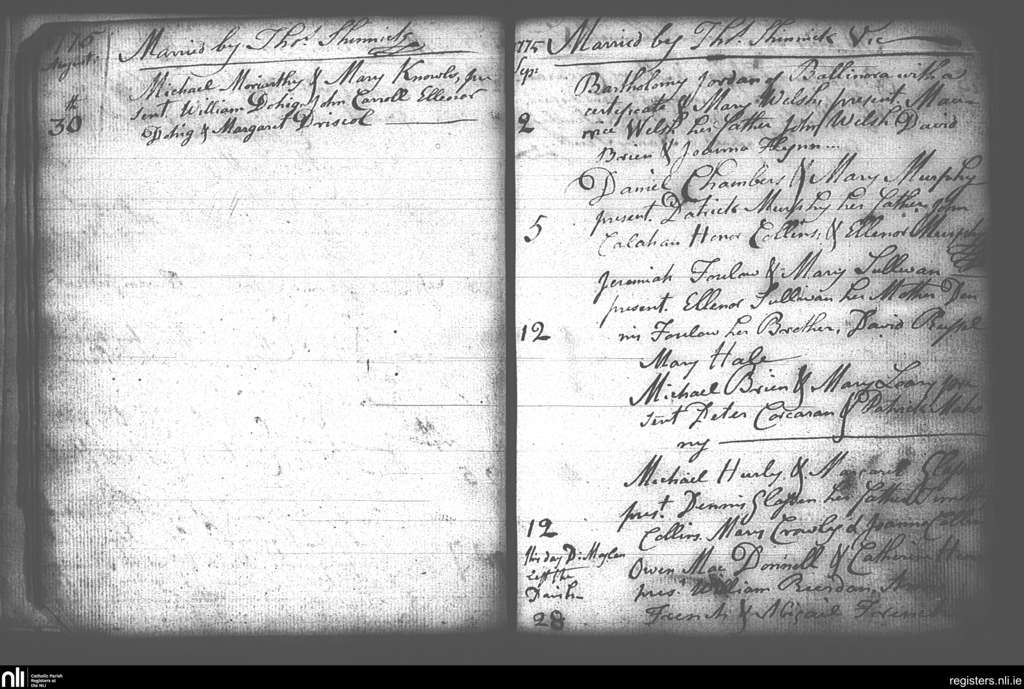 1775 Married by Thos. Shinnick
August:
Michael Moriarthy & Mary Knowls, pre
sent. William Dohig John Carroll Ellenor
30 Dohig & Margaret Driscol
1775 Married by Thos. Shinnick Vic
Sepr:
Bartholomy Jordan of Ballinora with a
certificate & Mary Welsh, present, Mau
2 rice Welsh her father John Welsh David
Brien & Joanna Flynn
Daniel Chambers & Mary Murphy
present. Patrick Murphy her father,
5 Calahan Honor Collins, & Ellenor Murphy
Jeremiah Foulow & Mary Sullivan
present. Ellenor Sullivan her Mother Den
12 nis Foulow her Brother, David Russel
Mary Hale
Michael Brien & Mary Leary pre
sent Peter Corcaran & Patrick Maho
ny
Michael Hurly & Margaret
prest. Dennis her father
12 Collins. Mary Crowly & Joanna
this day D: Moylan Owen Mac Donnell & Catherine
left the
Parish pres. William Reerdan,
28 French & Abigail French
nli Catholic Parish
Registers at
the NLI
registers.nli.ie